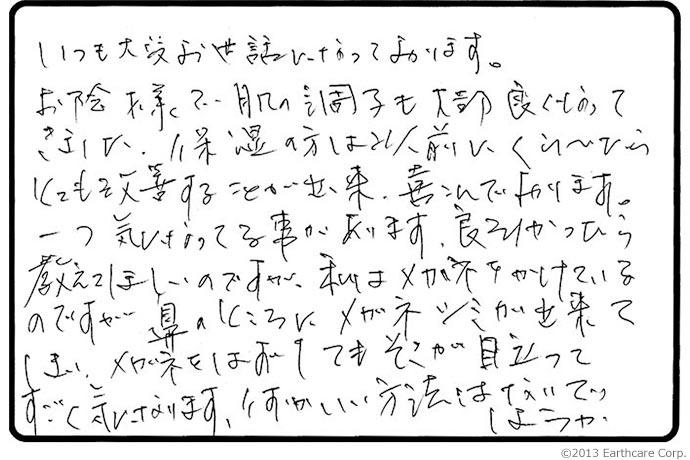 いつも大変お世話になっております。
お陰様で、肌の調子も大部良くなって
きました。保湿の方は以前にくらべたら
とても改善することが出来、喜こんでおります。
一つ気になってる事があります、良ろしかったら
教えてほしいのですが、私はメガネをかけている
のですが鼻のところにメガネジミが出来て
しまい、メガネをはずしてもそこが目立って
すごく気になります、何かいい方法はないで
しょうか
©2013 Earthcare Corp.